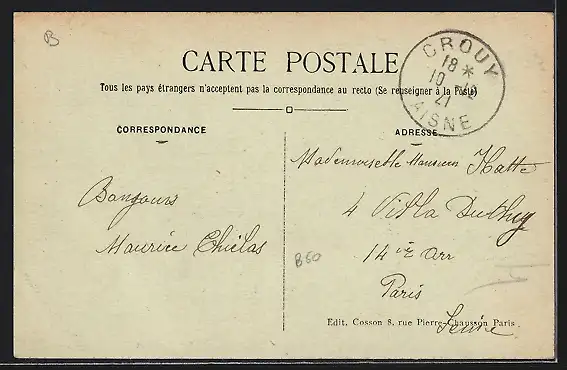 B
CARTE POSTALE
Tous les pays étrangers n'acceptent pas la correspondance au recto (Se renseigner à la Poste)
CROUY
18 *
10 - 12
21
AISNE
CORRESPONDANCE
ADRESSE
Mademoiselle Hatte
Bonjours
4 Villa
Maurice
14 iè arr
B60
Paris
Edit. Cosson 8, rue Pierre-Chausson Paris
Seine